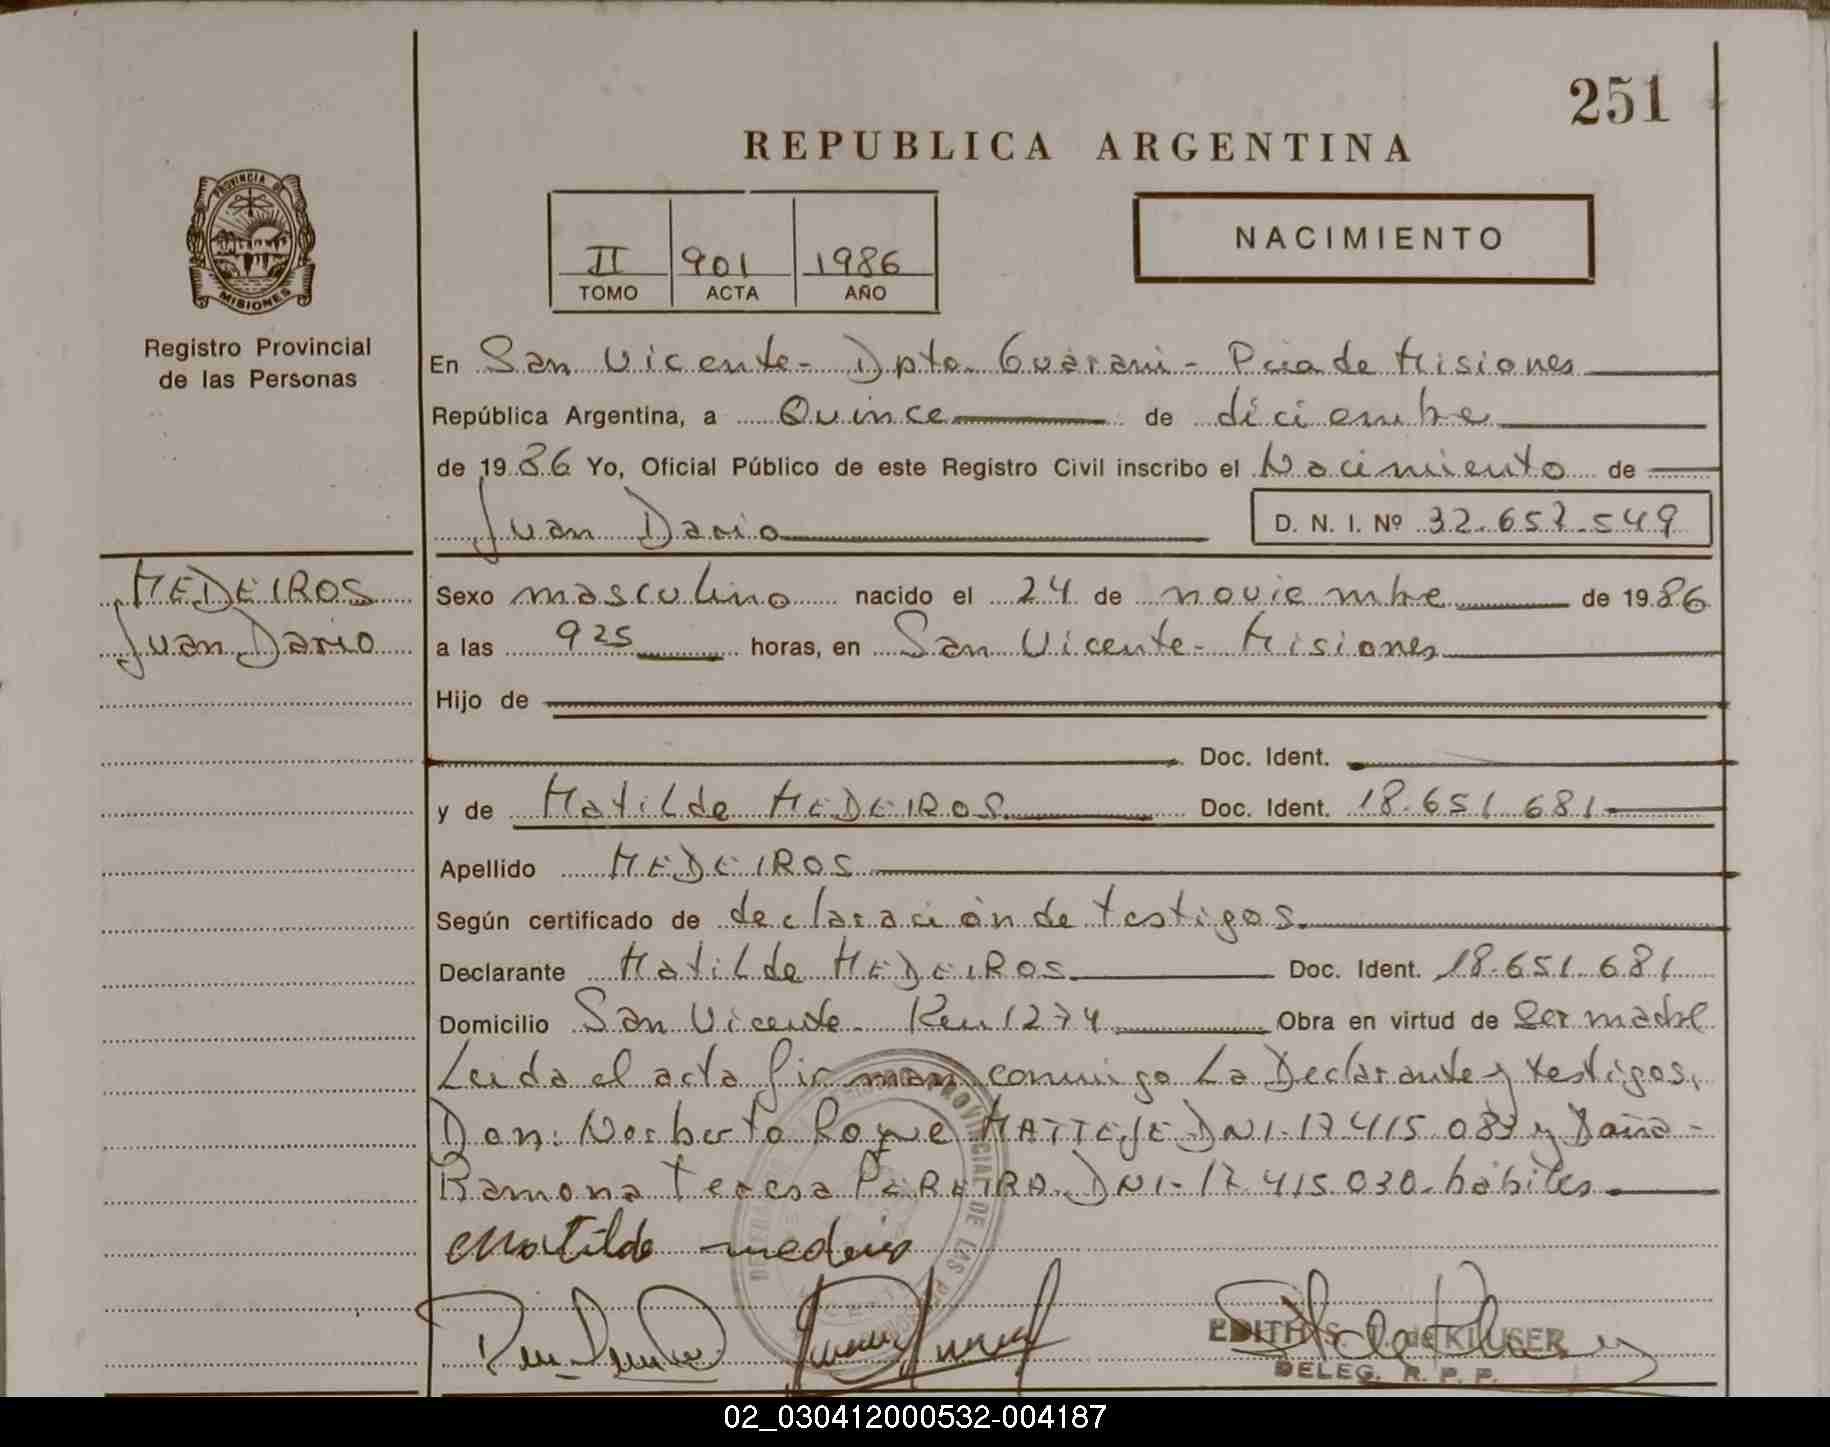 251
REPUBLICA ARGENTINA
PROVINCIA DE
MISIONES
II 901 1986
TOMO ACTA AÑO
NACIMIENTO
Registro Provincial
de las Personas
En San Vicente - Dpto. Guarani - Pcia de Misiones
República Argentina, a Quince de diciembre
de 1986 Yo, Oficial Público de este Registro Civil inscribo el Nacimiento de
Juan Dario D. N. I. Nº 32.657.549
MEDEIROS
Juan Dario
Sexo masculino nacido el 24 de noviembre de 1986
a las 925 horas, en San Vicente - Misiones
Hijo de
Doc. Ident.
y de Matilde MEDEIROS Doc. Ident. 18.651.681
Apellido MEDEIROS
Según certificado de declaración de testigos.
Declarante Matilde MEDEIROS. Doc. Ident. 18.651.681
Domicilio San Vicente - Km 1274 Obra en virtud de Ser madre
Leida el acta firman conmigo La Declarante y testigos,
Don: Norberto Roque DNI-17.415.087 y Doña -
Ramona Teresa PEREIRA. DNI-17.415.030. hábiles
Matilde medeiro
EDITH S. de KLUSER
DELEG. R. P. P.
02_030412000532-004187